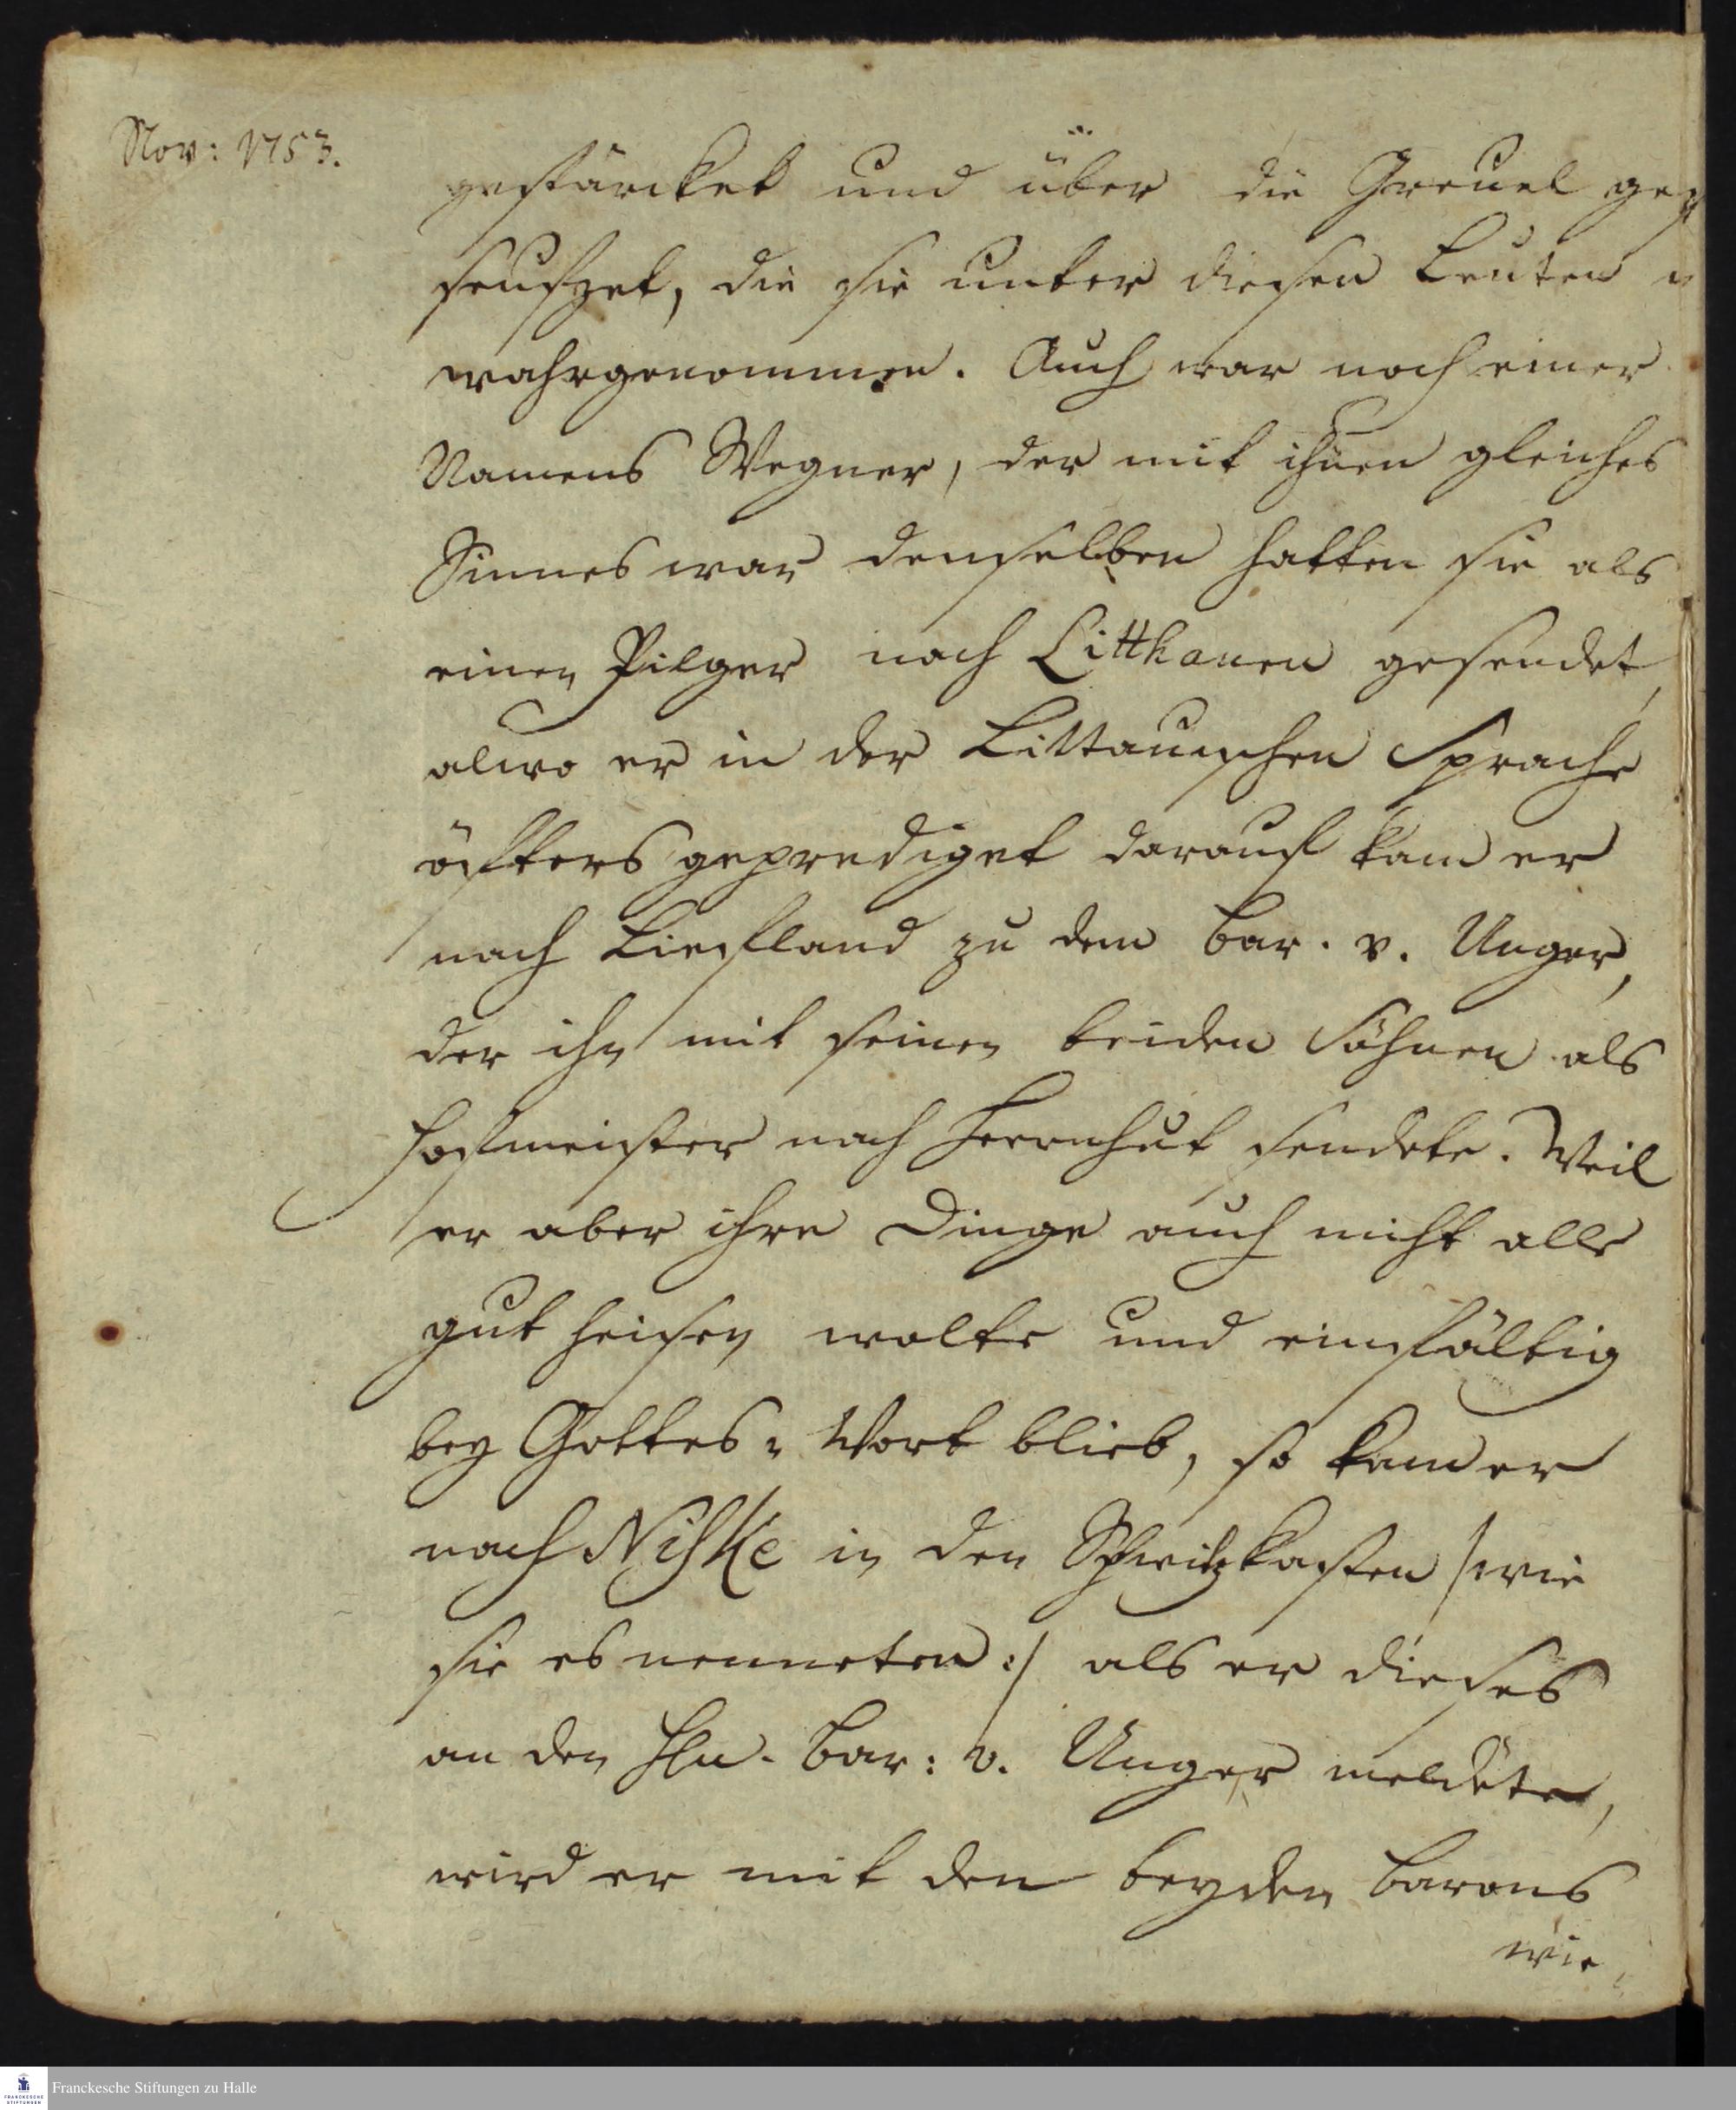 Nov: 1753.
gestärcket und über die Greuel ge-
seufzet, die sie unter diesen Leuten
wahrgenommen. Auch war noch einer
Namens Wegner, der mit ihnen gleiches
Sinnes war denselben hatten sie als
einen Pilger nach Litthauen gesendet,
alwo er in der Littauischen Sprache
öffters geprediget darauf kam er
nach Liefland zu dem Bar. v. Unger,
der ihn mit seinen beiden Söhnen als
Hofmeister nach Herrnhut sendete. Weil
er aber ihre Dinge auch nicht alle
gut heisen wolte und einfältig
bey Gottes-Wort blieb, so kam er
nach Niske in den Schwitzkasten /wie
sie es nenneten:/ als er dieses
an den Hn. Bar: v. Unger meldete,
wird er mit den beyden Barons
wie
Franckesche Stiftungen zu Halle
FRANCKESCHE
STIFTUNGEN